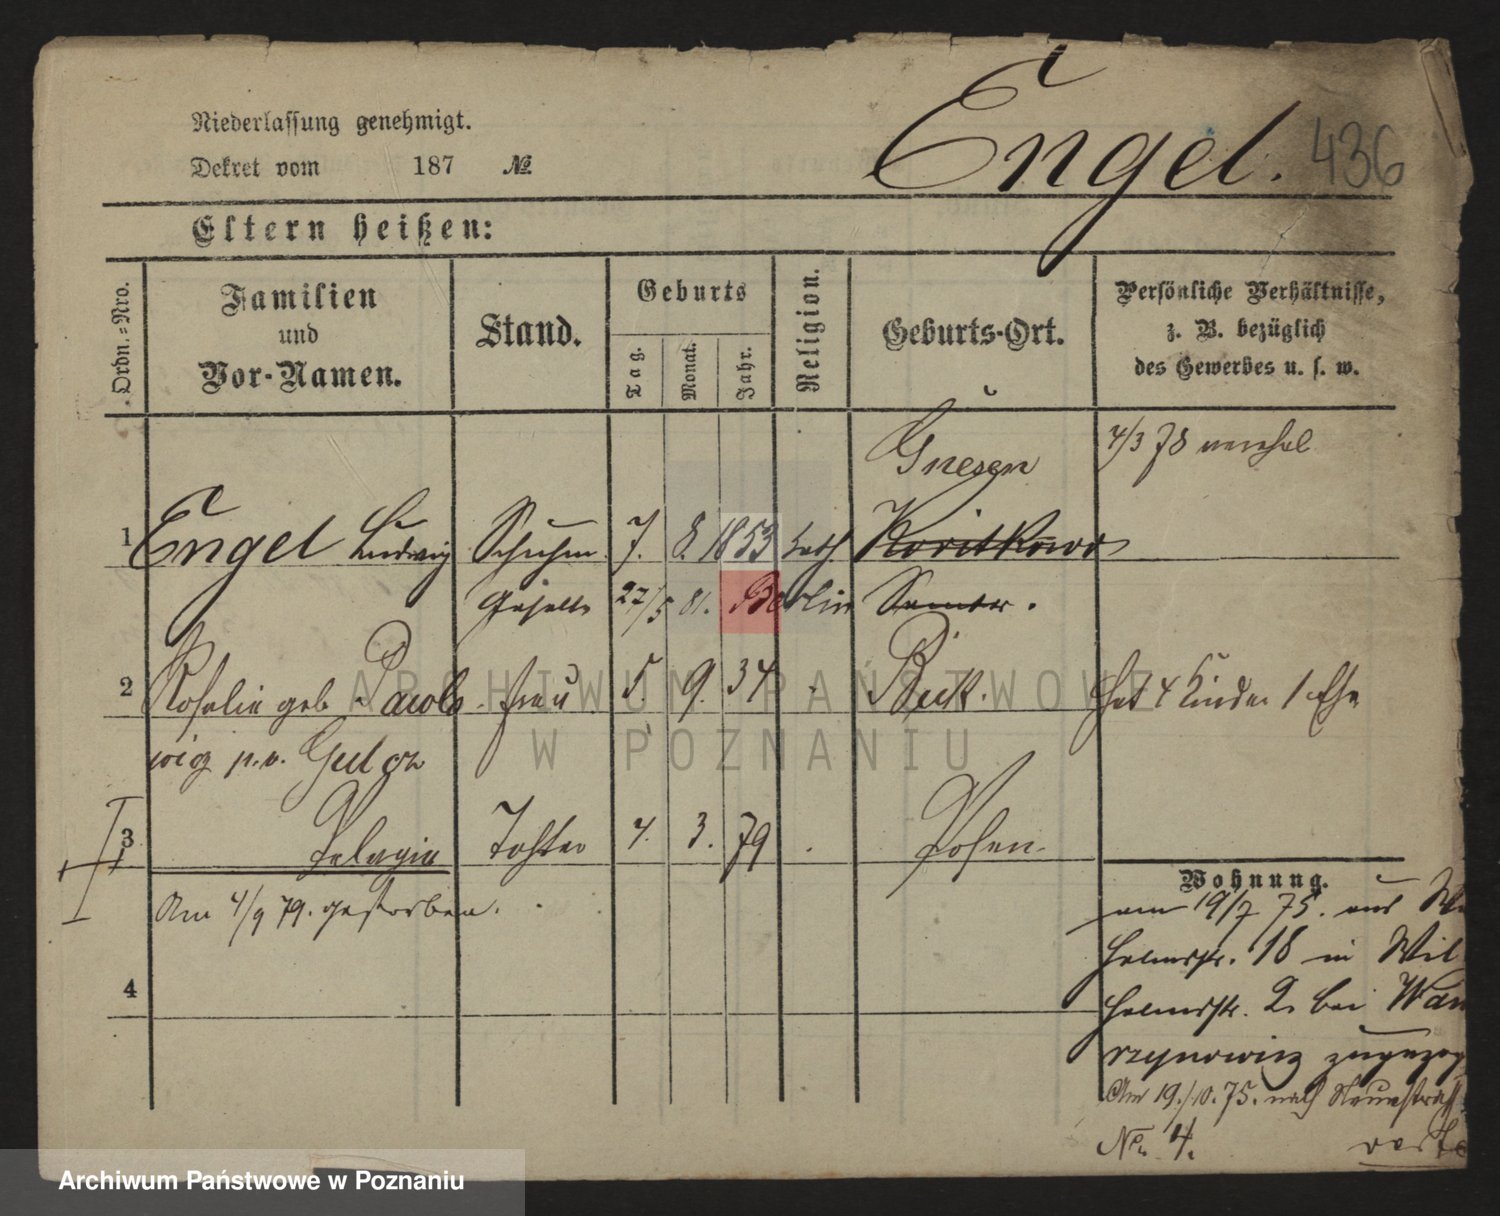 Niederlassung genehmigt.
Dekret vom 187 №
Engel. 436
Eltern heißen:
Ordn.-Nro.
Familien
und
Vor-Namen.
Stand.
Geburts
Tag.
Monat.
Jahr.
Religion.
Geburts-Ort.
Persönliche Verhältnisse,
z. B. bezüglich
des Gewerbes u. s. w.
Gnesen 4/3 78
1 Engel Ludwig Schuhm. 7. 8. 1853 kath. Koritkowo
Geselle 27/5 81. Berlin Samter.
2 Rosalie geb. Frau 5 9. 34 . Buk. hat 4 Kinder 1 Ehe
3 Pelagia Tochter 4. 3. 79 . Posen.
Am 4/9 79. gestorben.
4
Wohnung.
am 19/7 75. aus Wil
helmstr. 18 in Wil
helmstr. 2. bei Waw
rzynowicz zugezog
Am 19./10. 75. nach
№ 4.
ARCHIWUM PAŃSTWOWE
W POZNANIU
Archiwum Państwowe w Poznaniu